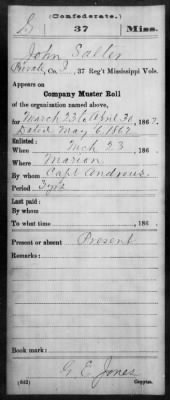 (Confederate.)
S 37 Miss.
John Salter
Private, Co. I, 37 Reg't Mississippi Vols.
Appears on
Company Muster Roll
of the organization named above,
for March 23 to April 30, 1862
Dated May 6, 1862
Enlisted:
When Mch 23, 186 .
Where Marion
By whom Capt Andrews
Period 3 yrs
Last paid:
By whom
To what time , 186 .
Present or absent Present
Remarks:
Book mark:
G. E. Jones
(642) Copyist.